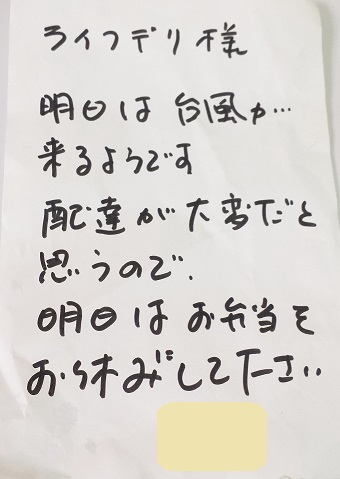 ライフデリ様
明日は台風が…
来るようです
配達が大変だと
思うので、
明日はお弁当を
お休みして下さい